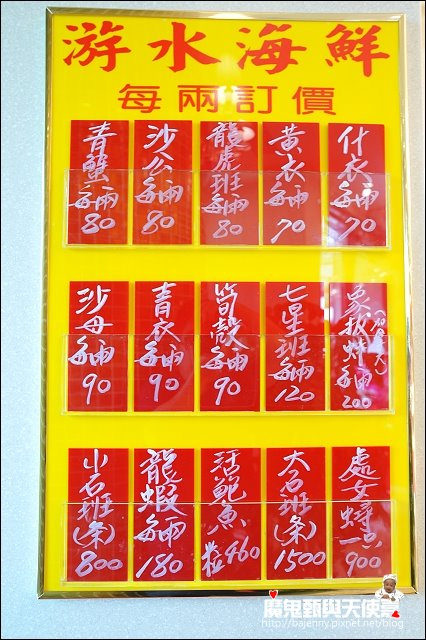 游水海鮮
每兩訂價
青蟹每両80
沙公每両80
龍虎班每両80
黃衣每両70
什衣每両70
沙母每両90
青衣每両90
筍殼每両90
七星班每両120
象拔蚌每両200
小石班(条)800
龍蝦每両180
活鮑魚粒460
大石班(条)1500
處女蟳一只900
魔鬼甄與天使嘉
http://bajenny.pixnet.net/blog